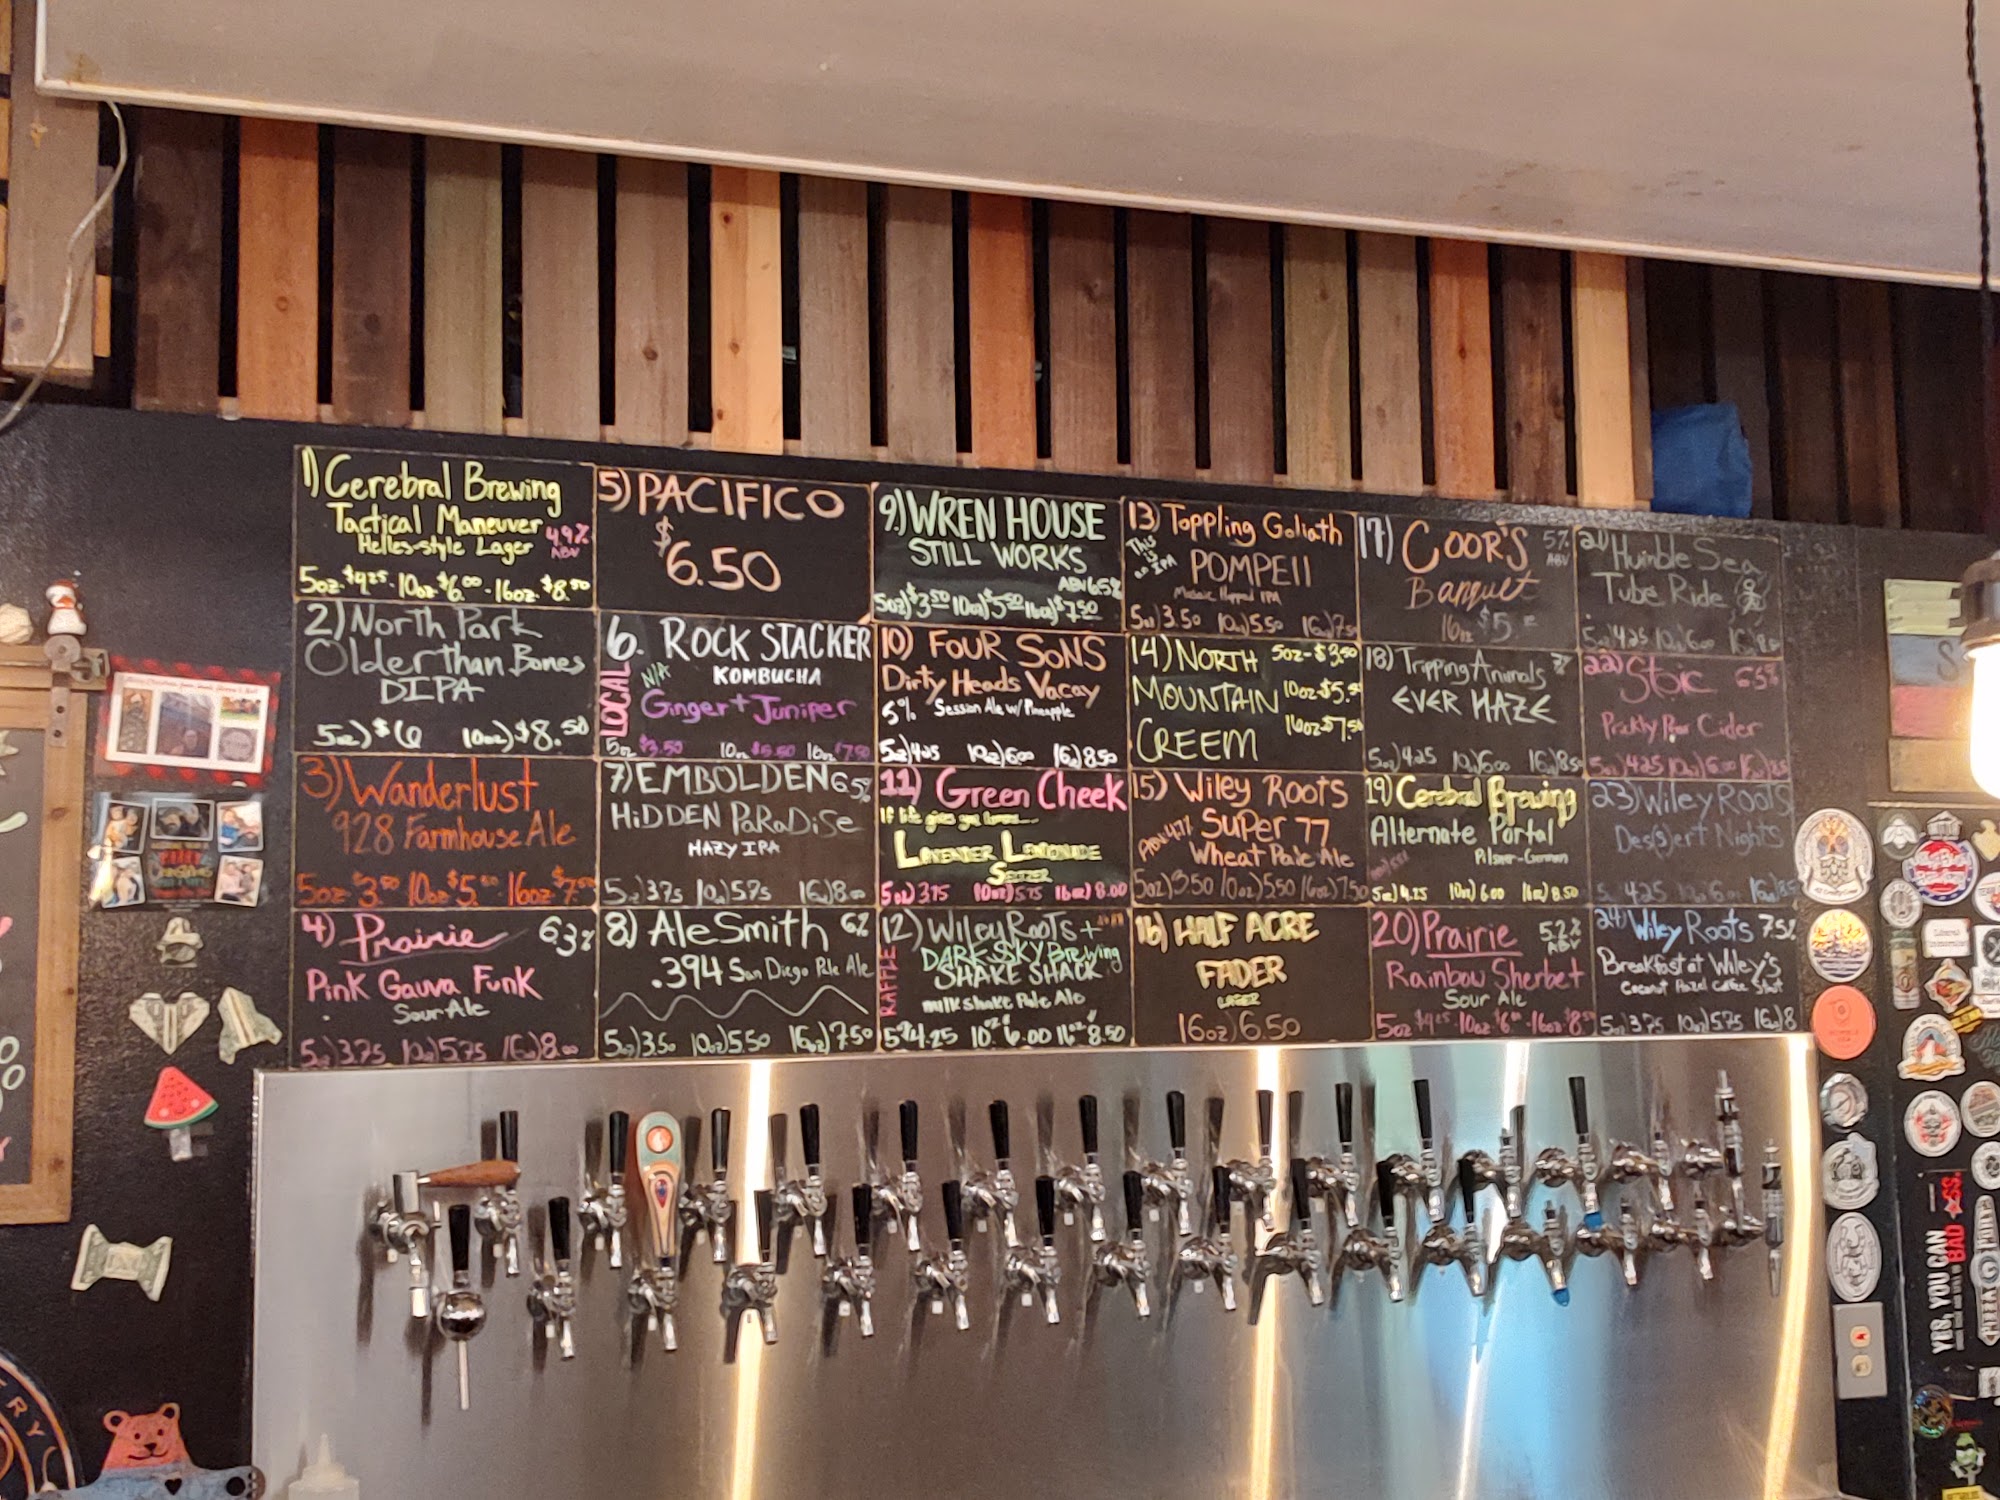 1) Cerebral Brewing
Tactical Maneuver 4.9%
Helles-style Lager ABV
5oz-$4.25-10oz$6.00-16oz-$8.50
2) North Park
Older than Bones
DIPA
5oz) $6 10oz) $8.50
3) Wanderlust
928 Farmhouse Ale
5oz-$3.50 10oz $5.50 16oz-$7.50
4) Prairie 6.3%
Pink Gauva Funk
Sour Ale
5oz) 3.75 10oz) 5.75 16oz) 8.00
5) PACIFICO
$6.50
6. ROCK STACKER
LOCAL
N/A KOMBUCHA
Ginger + Juniper
5oz $3.50 10oz $5.50 16oz $7.50
7) EMBOLDEN 6.5%
HiDDEN PaRaDiSe
HAZY IPA
5oz) 3.75 10oz) 5.75 16oz) 8.00
8) AleSmith 6%
.394 San Diego Pale Ale
5oz) 3.50 10oz) 5.50 16oz) 7.50
9.) WREN HOUSE
STILL WORKS
ABV 6.5%
5oz) $3.50 10oz) $5.50 16oz) $7.50
10) FOUR SONS
Dirty Heads Vacay
5% Session Ale w/ Pineapple
5oz) 4.25 10oz) 6.00 16oz) 8.50
11) Green Cheek
If life gives you lemons...
LAVENDER LEMONADE
SELTZER
5oz) 3.75 10oz) 5.75 16oz) 8.00
12) Wiley Roots +
RAFFLE
DARK SKY Brewing
SHAKE SHACK
milkshake Pale Ale
5oz 4.25 10oz 6.00 16oz 8.50
13) Toppling Goliath
THIS IS an IPA
POMPEII
Mosaic Hopped IPA
5oz) 3.50 10oz) 5.50 16oz) 7.50
14) NORTH 5oz-$3.50
MOUNTAIN 10oz-$5.50
CREEM 16oz-$7.50
15) Wiley Roots
ABV 4.7% Super 77
Wheat Pale Ale
5oz) 3.50 10oz) 5.50 16oz) 7.50
16) HALF ACRE
FADER
LAGER
16oz) 6.50
17) COOR'S 5% ABV
Banquet
16oz $5
18) Tripping Animals
EVER HAZE
5oz) 4.25 10oz) 6.00 16oz) 8.50
19) Cerebral Brewing
Alternate Portal
Pilsner-German
5oz) 4.25 10oz) 6.00 16oz) 8.50
20) Prairie 5.2% ABV
Rainbow Sherbet
Sour Ale
5oz $4.25-10oz-$6.00-16oz-$8.50
21) Humble Sea
Tube Ride
5oz) 4.25 10oz) 6.00 16oz) 8.50
22) Stoic 6.5%
Prickly Pear Cider
5oz) 4.25 10oz) 6.00 16oz) 8.5
23) Wiley Roots
Des(s)ert Nights
5 4.25 10oz) 6.00 16oz) 8.5
24) Wiley Roots 7.5%
Breakfast at Wiley's
Coconut Hazel Coffee Stout
5oz) 3.75 10oz) 5.75 16oz) 8
YES, YOU CAN
BAD ASS.